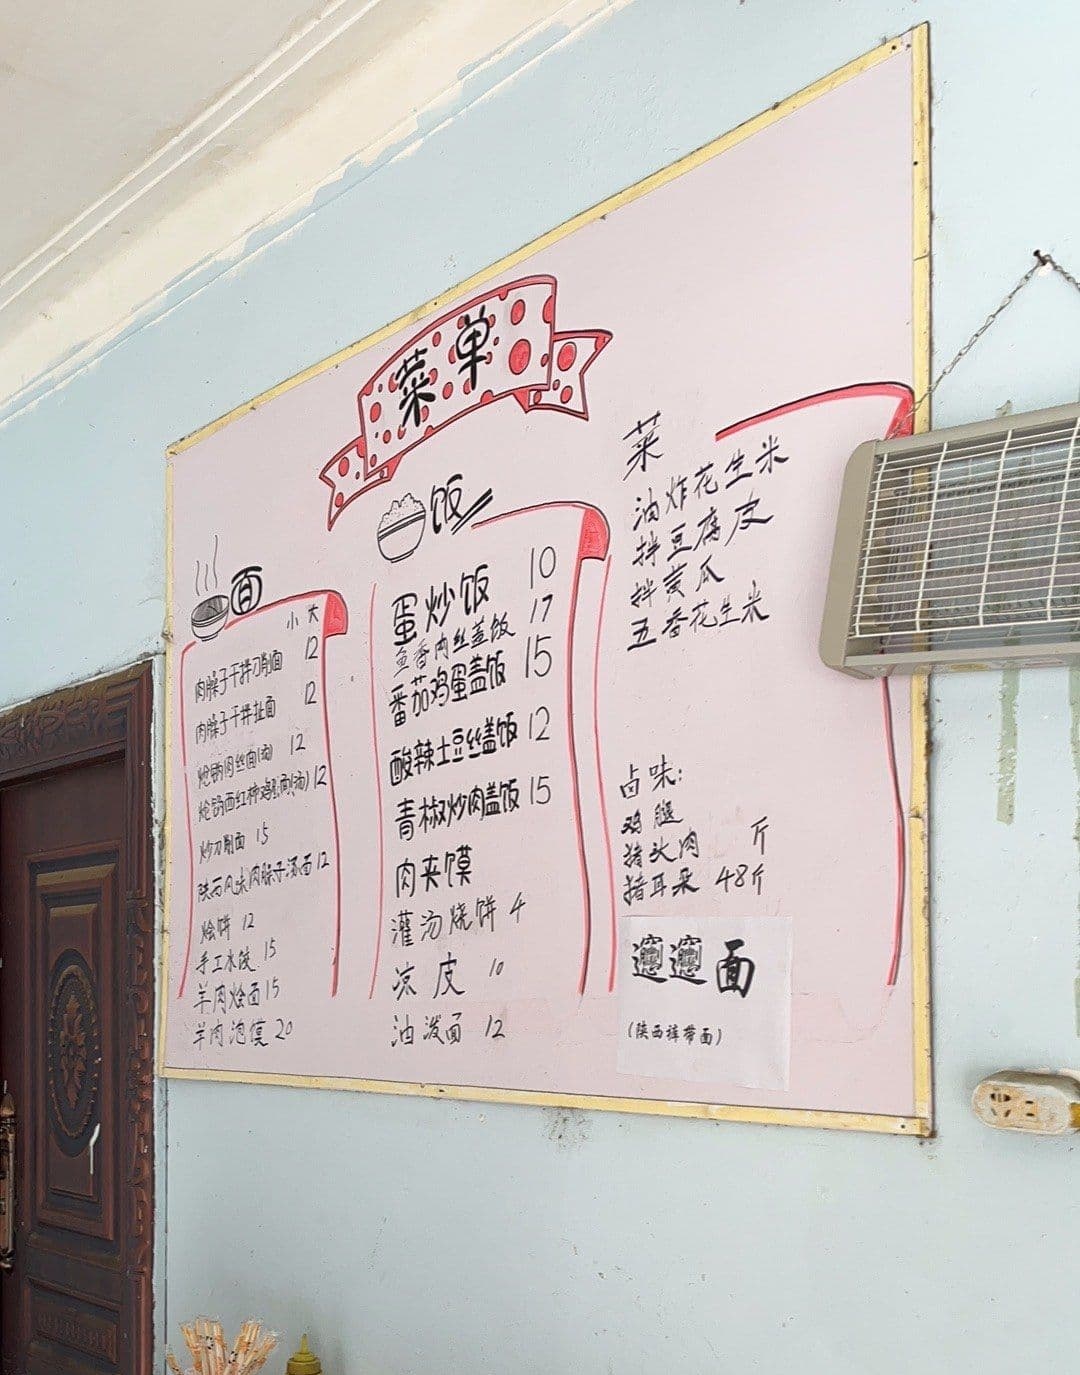 菜单
面
小 大
肉臊子干拌刀削面 12
肉臊子干拌扯面 12
炝锅肉丝面(汤) 12
炝锅西红柿鸡蛋面(汤) 12
炒刀削面 15
陕西风味肉臊子汤面 12
烩饼 12
手工水饺 15
羊肉烩面 15
羊肉泡馍 20
饭
蛋炒饭 10
鱼香肉丝盖饭 17
番茄鸡蛋盖饭 15
酸辣土豆丝盖饭 12
青椒炒肉盖饭 15
肉夹馍
灌汤烧饼 4
凉皮 10
油泼面 12
菜
油炸花生米
拌豆腐皮
拌黄瓜
五香花生米
卤味:
鸡腿
猪头肉 斤
猪耳朵 48斤
𰻝𰻝面
(陕西裤带面)